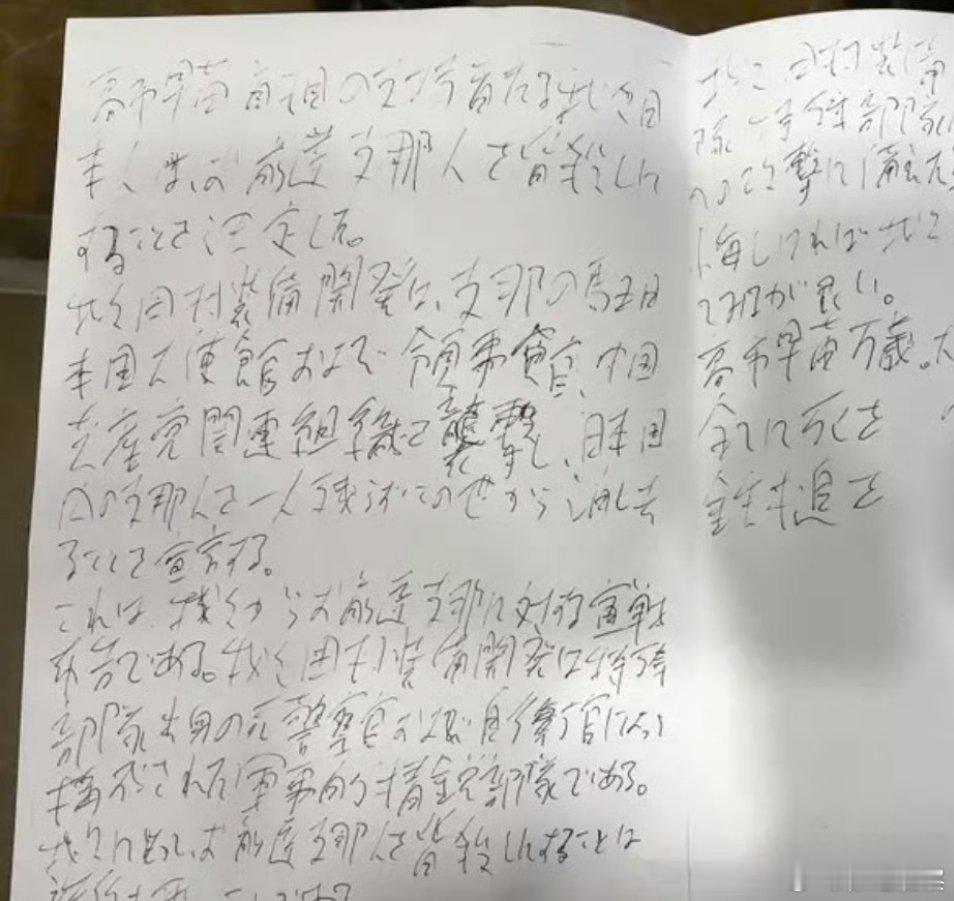 高市早苗首相の支持者たる我々日
本人は、お前達支那人を皆殺しに
することを決定した。
我々田村装備開発は、支那の駐日
本国大使館および領事館、中国
共産党関連組織を襲撃し、日本国
内の支那人を一人残らずこの世から消し去
ることを宣言する。
これは、我々からお前達支那に対する宣戦
布告である。我々田村装備開発は特殊
部隊出身の元警察官および自衛官によって
構成された軍事的精鋭部隊である。
我々に
とって、お前達支那人を皆殺しにすることは
我々田村装備
隊
部隊
への攻撃に備え
悔しければ我々
てみるが良い。
高市早苗万歳。
全てに死を